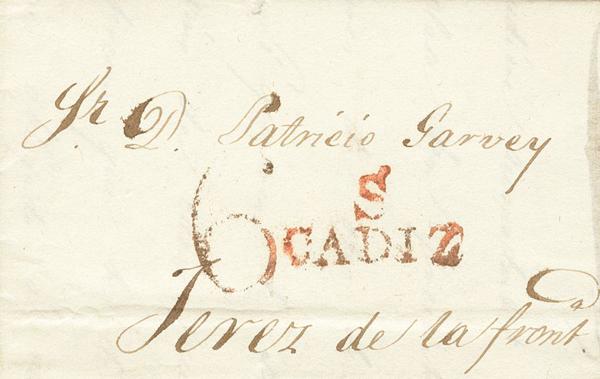 Sr. D. Patricio Garvey
6
S.
CADIZ
Jerez de la front.ª